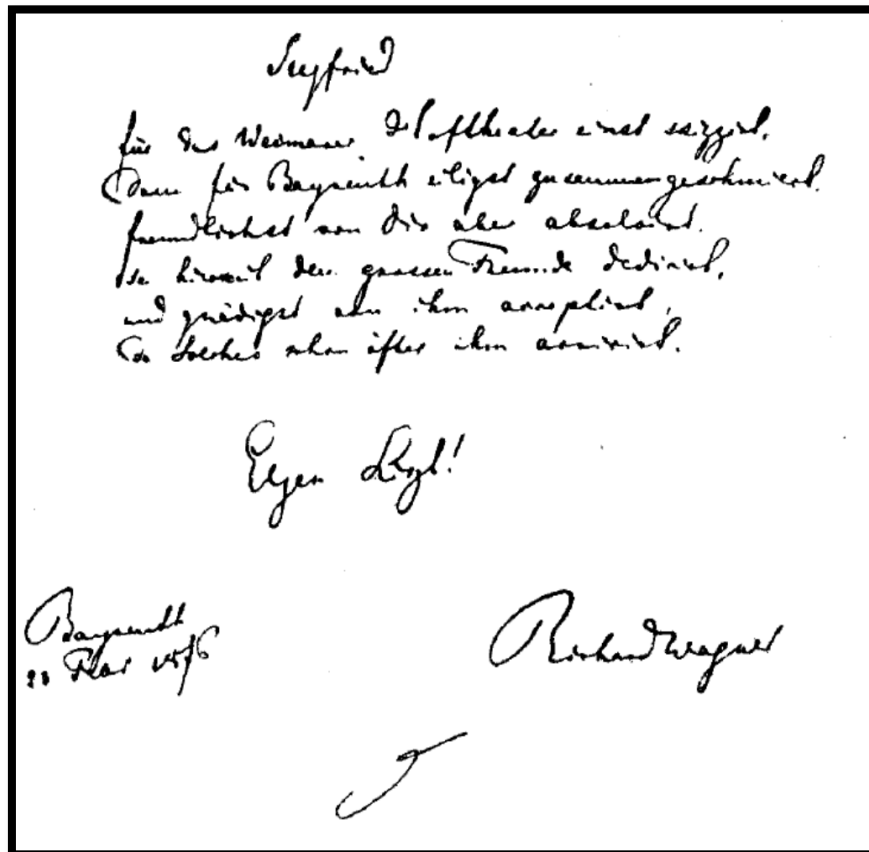 Siegfried
für das Weimaner Hoftheater einst skizzirt,
Dann für Bayreuth eiligst zusammengeschmiert.
freundlichst von Dir aber absolvirt.
sei hiermit dem grossen Freunde dedicirt,
und gnädigst von ihm acceptirt,
Da Solches schon öfter ihm arrivirt.
Eljen
Bayreuth
Mai 1876
Richard Wagner